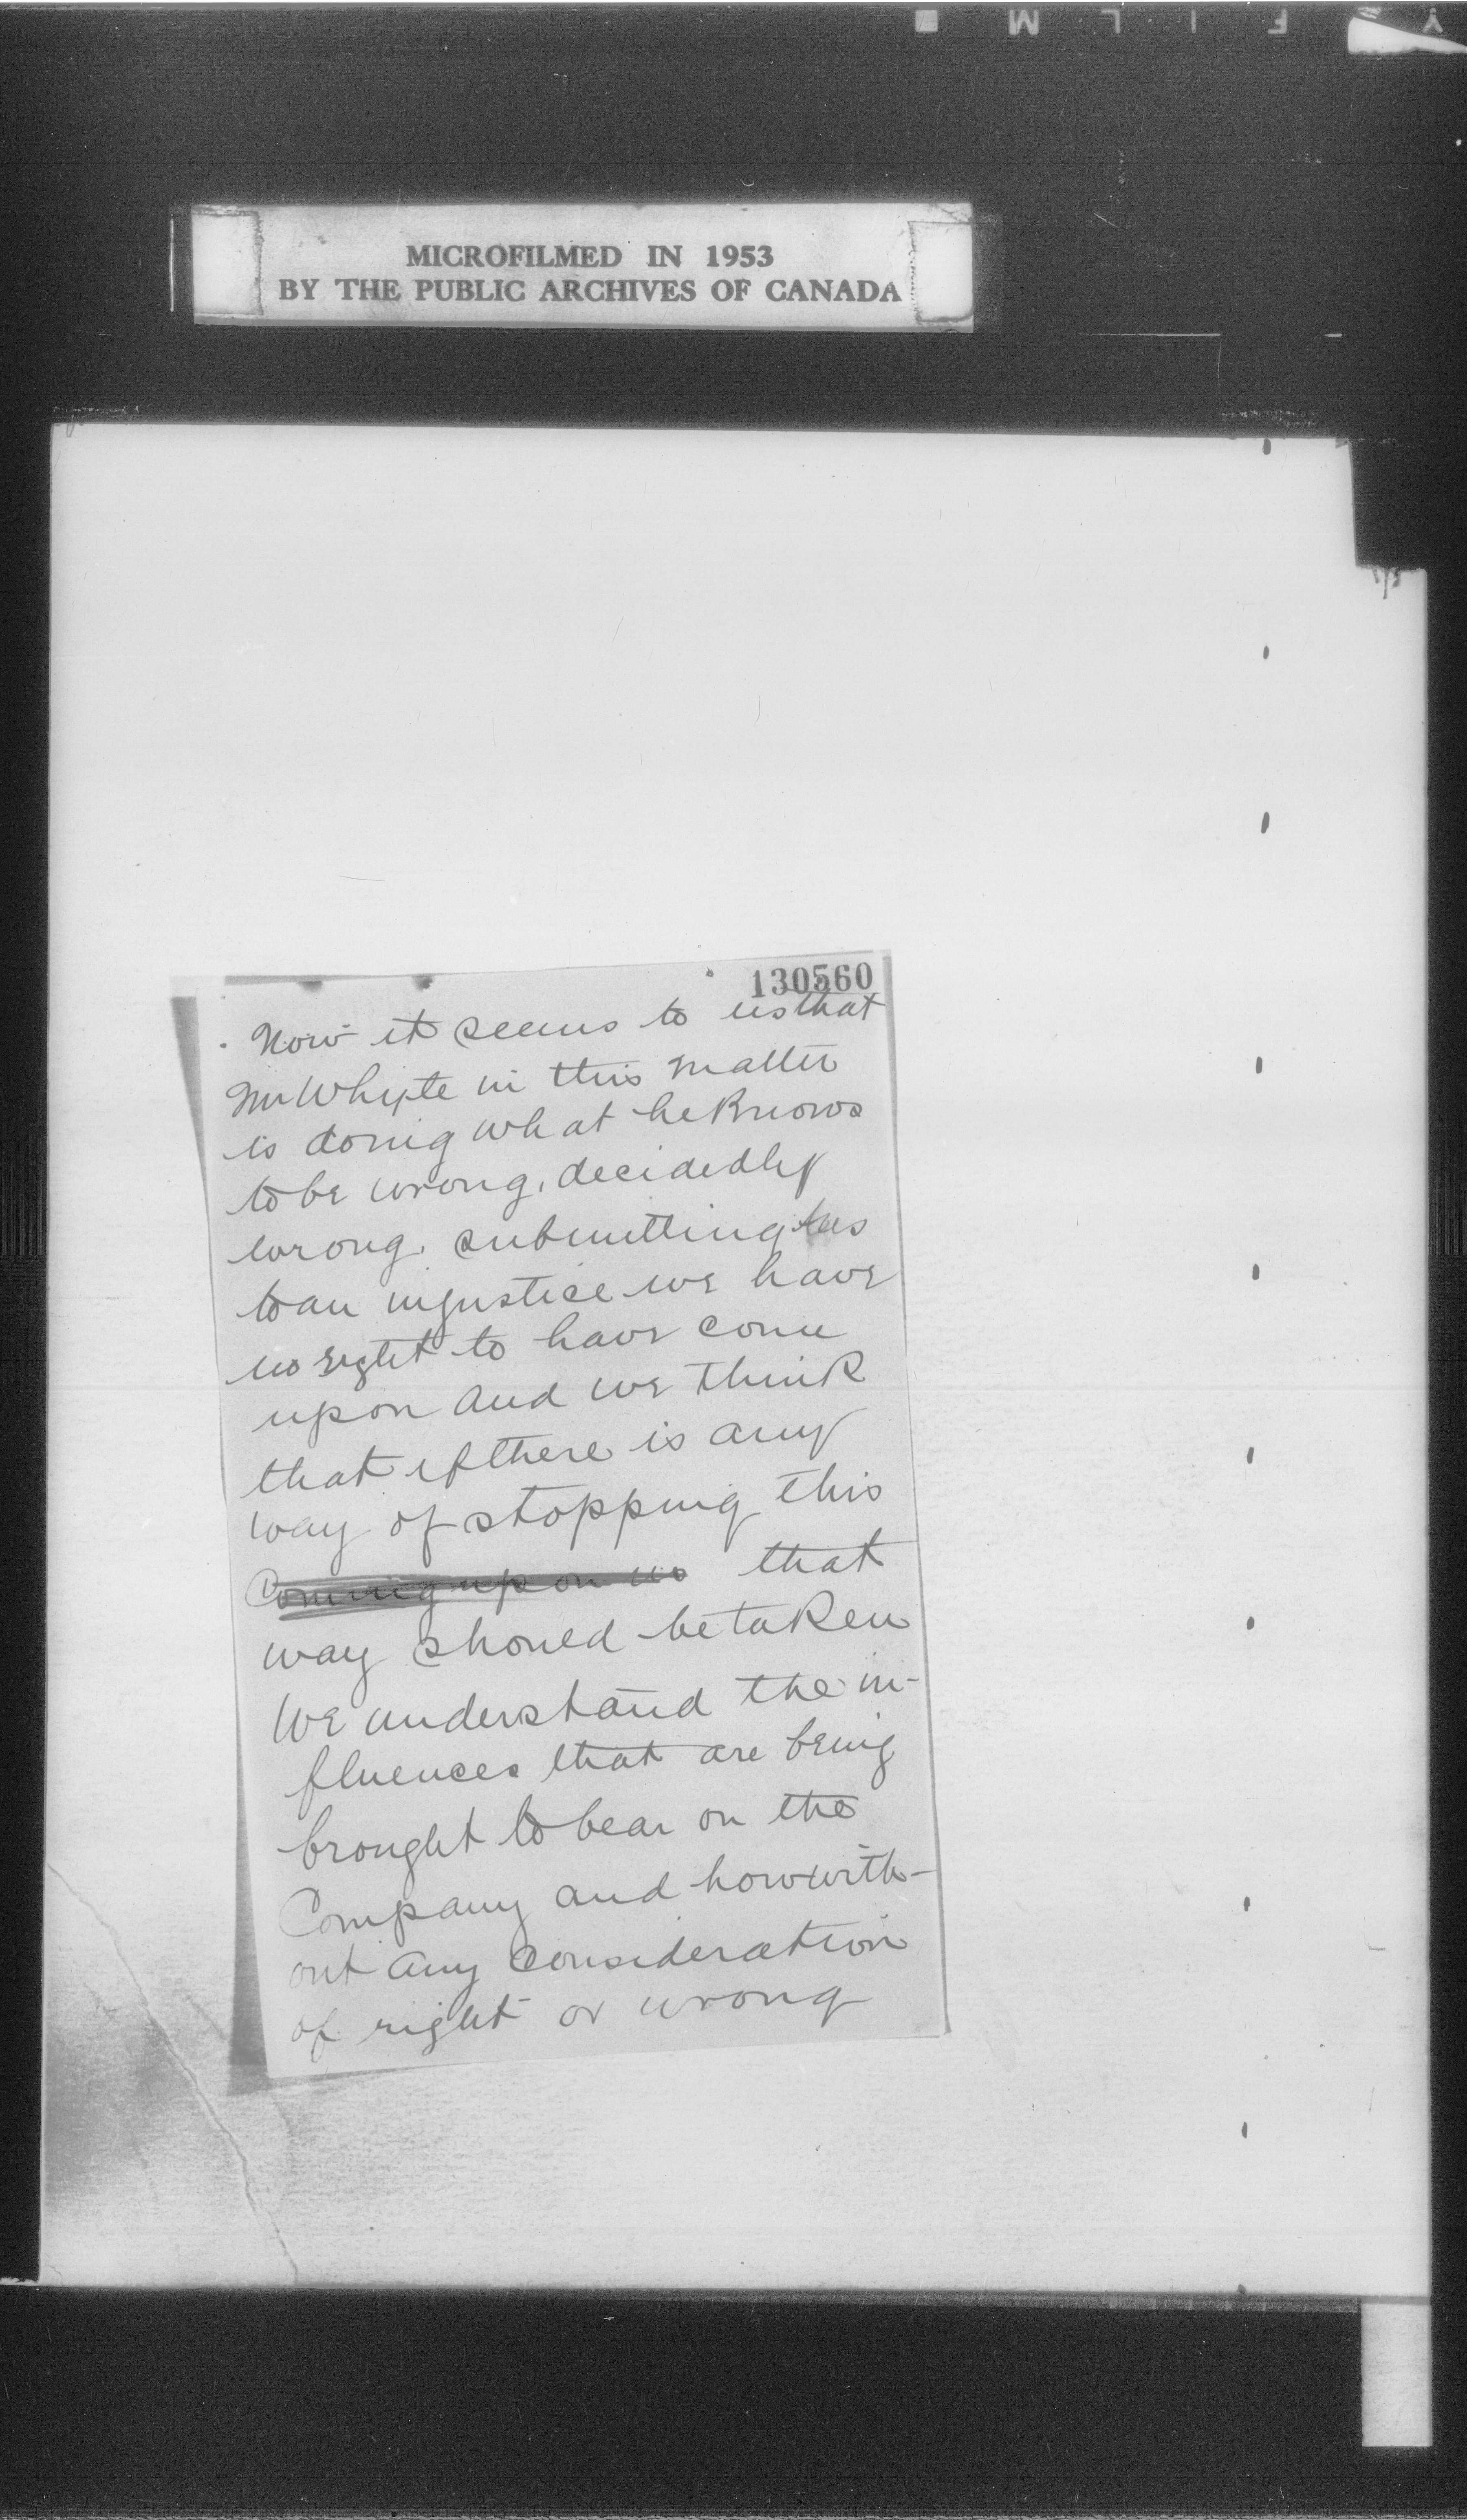 Y F I L M
MICROFILMED IN 1953
BY THE PUBLIC ARCHIVES OF CANADA
130560
Now it seems to us that
Mr Whyte in this matter
is doing what he knows
to be wrong, decidedly
wrong. submitting us
to an injustice we have
no right to have come
upon and we think
that if there is any
way of stopping this
Coming upon us that
way should be taken
We understand the in-
fluences that are being
brought to bear on the
Company and how with-
out any consideration
of right or wrong